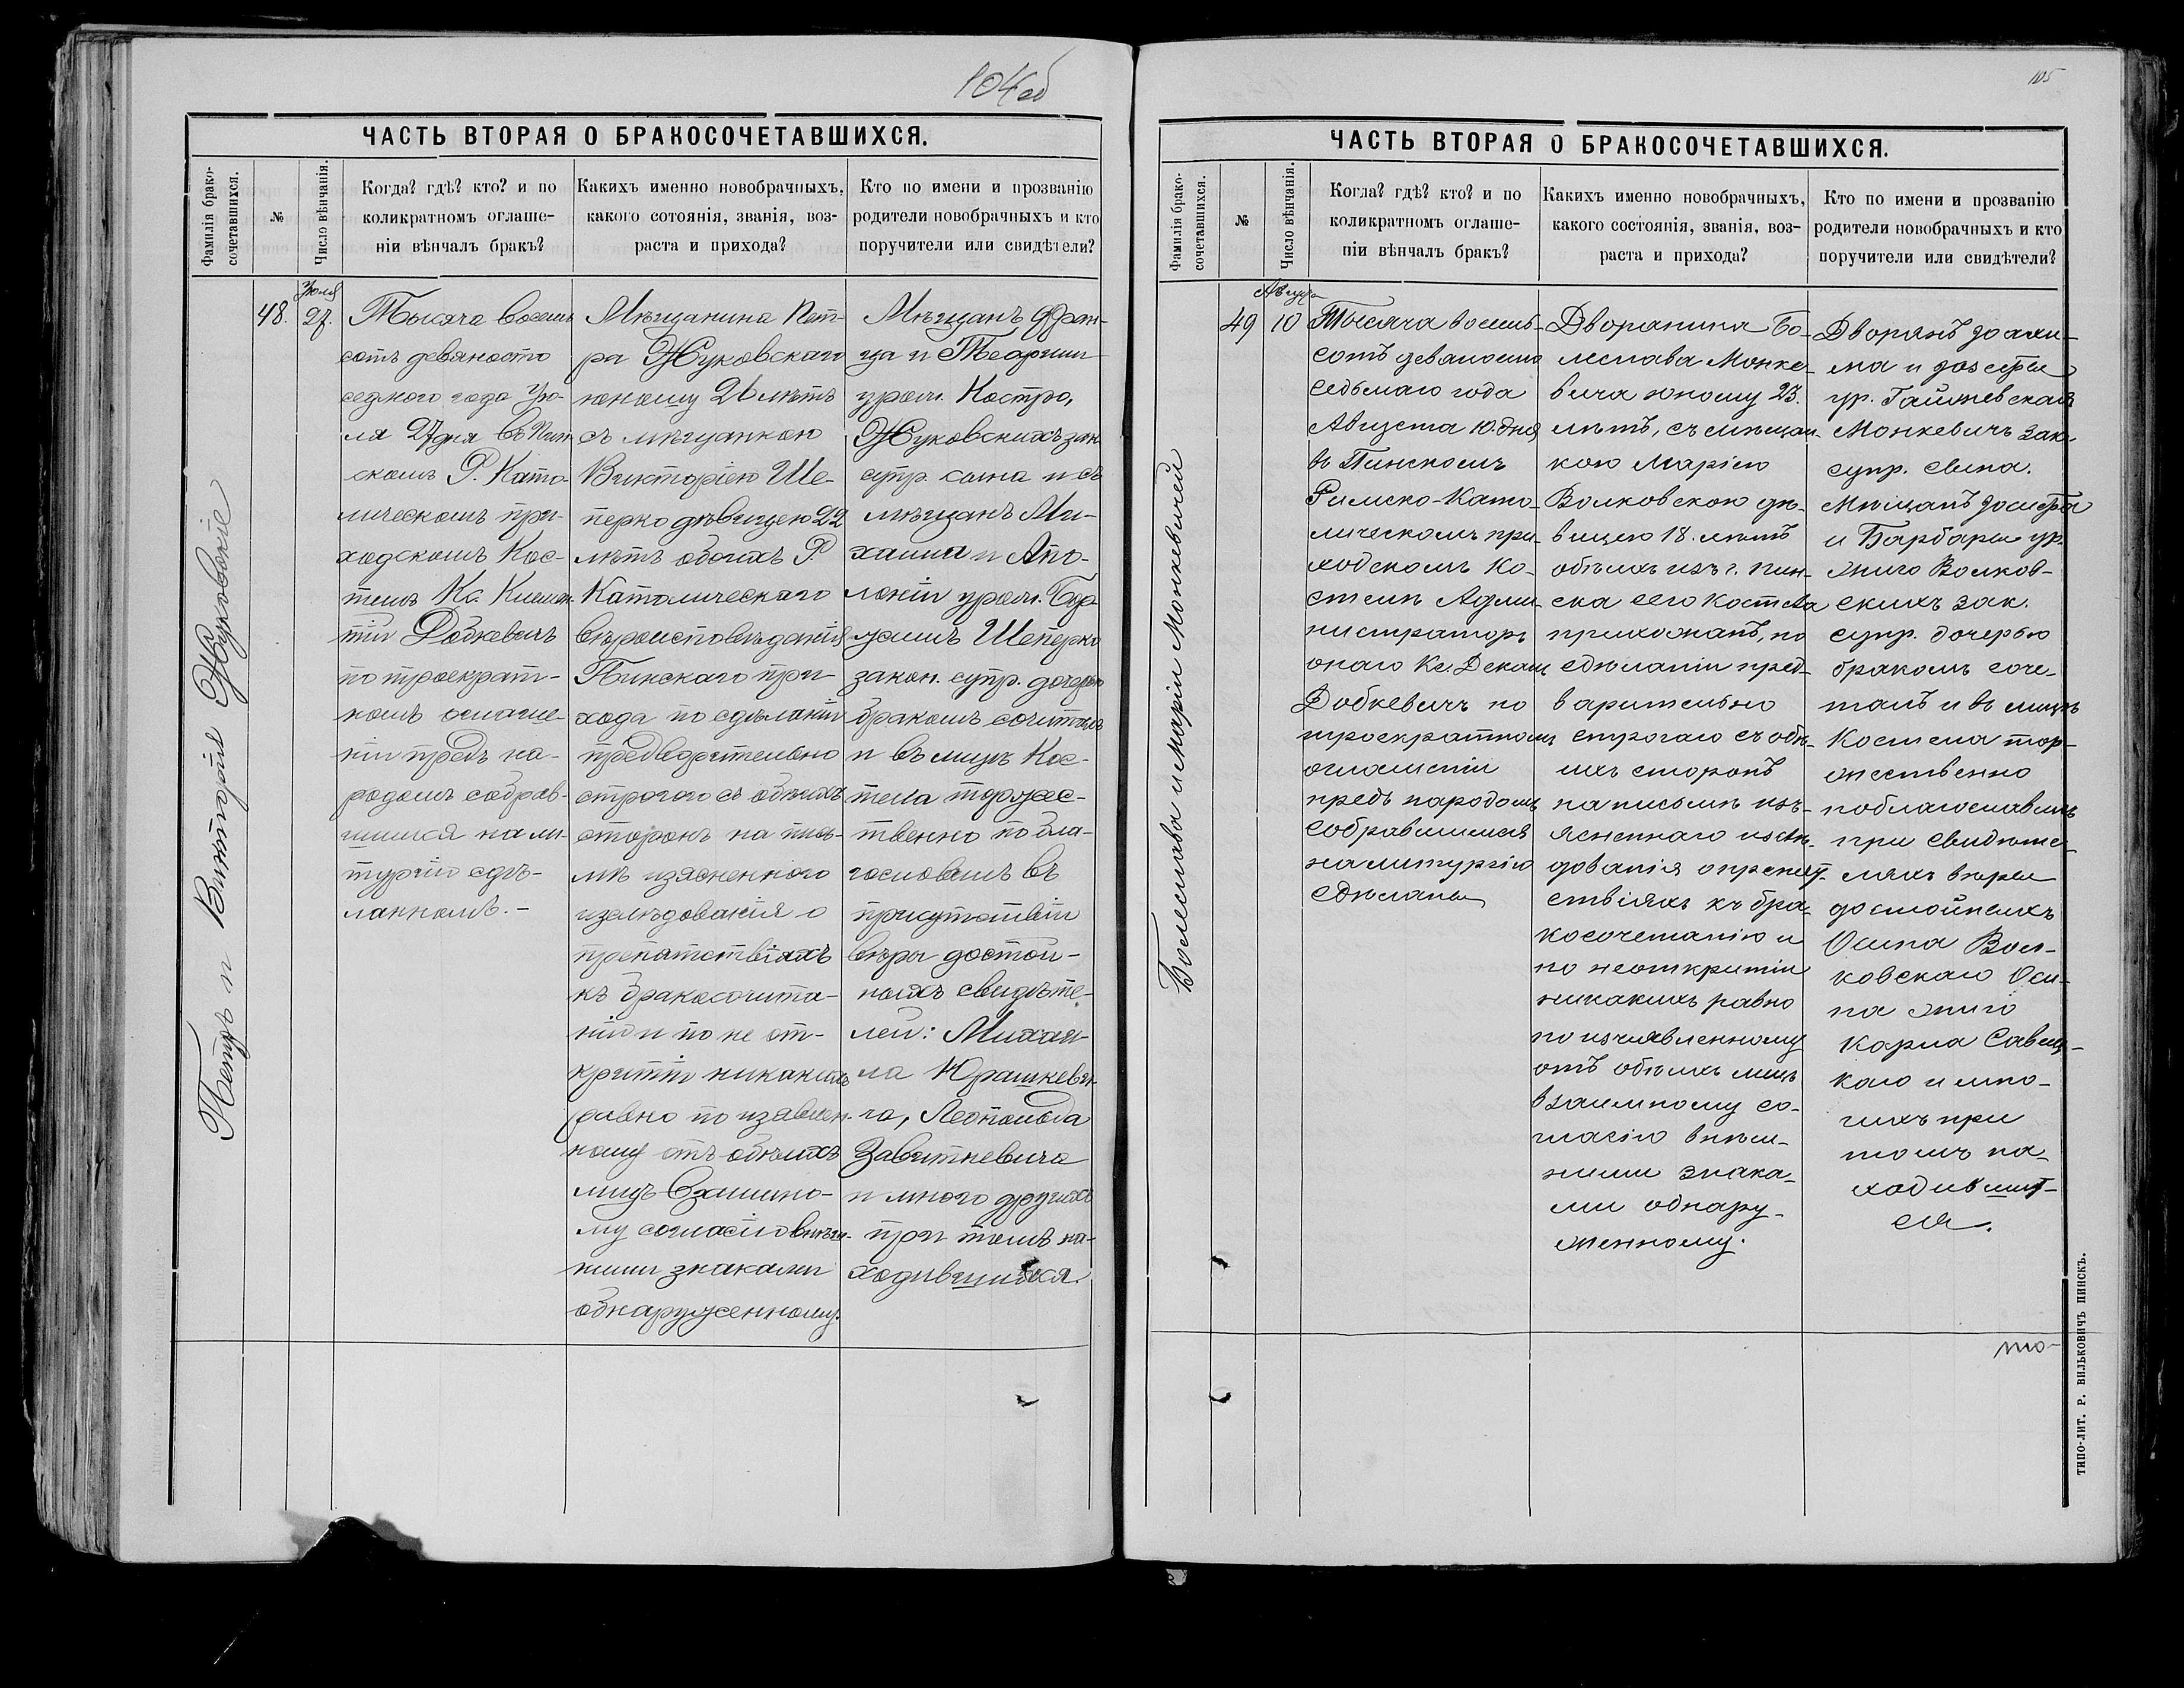 104об
ЧАСТЬ ВТОРАЯ О БРАКОСОЧЕТАВШИХСЯ.
Фамилія брако-
сочетавшихся.
№
Число вѣнчанія.
Когда? гдѣ? кто? и по
коликратномъ оглаше-
ніи вѣнчалъ бракъ?
Какихъ именно новобрачныхъ,
какого сотоянія, званія, воз-
раста и прихода?
Кто по имени и прозванію
родители новобрачныхъ и кто
поручители или свидѣтели?
Петръ и Викторія Жуковскіе
48.
Іюля
27.
Тысяча восемь
сотъ девяносто
седмого года Ію-
ля 27 дня въ Пин
скомъ Р. Като-
лическомъ при-
ходскомъ Кос-
телѣ Кс. Климен-
тій Добкевичъ
по троекрат-
номъ оглаше-
ніи предъ на-
родомъ собрав-
шимся на ли-
тургію сдѣ-
ланномъ.-
Мѣщанина Пет-
ра Жуковскаго
юношу 26 лѣтъ
съ мѣщанкою
Викторіею Ше-
перко дѣвицею 22
лѣтъ обоихъ Р.
Католическаго
вѣроисповѣданія
Пинскаго при
хода по сдѣланіи
предварительно
строгого съ обѣихъ
сторонъ на пись-
мѣ изясненного
изслѣдованія о
препятствіяхъ
къ бракосочита-
нію и по не от-
критіи никакихъ
равно по изявлен-
ному отъ обѣихъ
лицъ взаимно-
му согласію внѣш-
ними знаками
обнаруженному.
Мѣщанъ Фран-
ца и Теофили
урож. Костро,
Жуковскихъ зак
супр. сына и съ
мѣщанъ Ми-
хаила и Апо-
лоніи урож.
Шеперко
закон. супр. дочерью
бракомъ сочиталъ
и въ лицѣ Кос-
тела торжес-
твенно побла-
гословилъ въ
присутствіи
вѣры достой-
ныхъ свидѣте-
лей: Михаи-
ла Юрашкеви-
ча, Леопольда
Завиткевича
и много другихъ
при томъ на-
ходившихся.
105
ЧАСТЬ ВТОРАЯ О БРАКОСОЧЕТАВШИХСЯ.
Фамилія брако-
сочетавшихся.
№
Число вѣнчанія.
Когда? гдѣ? кто? и по
коликратномъ оглаше-
ніи вѣнчалъ бракъ?
Какихъ именно новобрачныхъ,
какого состоянія, званія, воз-
раста и прихода?
Кто по имени и прозванію
родители новобрачныхъ и кто
поручители или свидѣтели?
Болеслава и Маріи Монкевичей
49
Августа
10
Тысяча восемь-
сотъ девяносто
седьмаго года
Августа 10. дня
въ Пинскомъ
Римско-Като-
лическомъ при-
ходскомъ Ко-
стелѣ Адми-
нистраторъ
онаго Кс. Декан
Добкевичъ по
троекратномъ
оглашеніи
предъ народомъ
собравшимся
на литургію
сдѣланы
Дворянина Бо-
леслава Монке-
вича юношу 23.
лѣтъ, съ мѣщан-
кою Маріею
Волковскою дѣ-
вицею 18. лѣтъ
обѣихъ изъ г. Пин-
ска сего костела
прихожанъ, по
сдѣланіи пред-
варительно
строгаго съ обѣ-
ихъ сторонъ
на письмѣ изъ-
ясненнаго изслѣ-
дованія о препят-
ствіяхъ къ бра-
косочетанію и
по неоткритіи
никакихъ равно
по изъявленному
отъ обѣихъ лицъ
взаимному со-
гласію внѣш-
ними знака-
ми обнару-
женному.
Дворянъ Іоахи-
ма и Іозефы
ур.
Монкевичъ зак.
супр. сына.
Мѣщанъ Іосифа
и Барбары ур.
Волков-
скихъ зак.
супр. дочерью
бракомъ соче-
талъ и въ лицѣ
Костела тор-
жественно
поблагославилъ
при свидѣте-
ляхъ вѣры
достойныхъ
Осипа Вол-
ковскаго Оси-
па
Карла Савиц-
каго и мно-
гихъ при
томъ на-
ходивших-
ся.
то-
ТИПО-ЛИТ. Р. ВИЛЬКОВИЧЪ ПИНСКЪ.